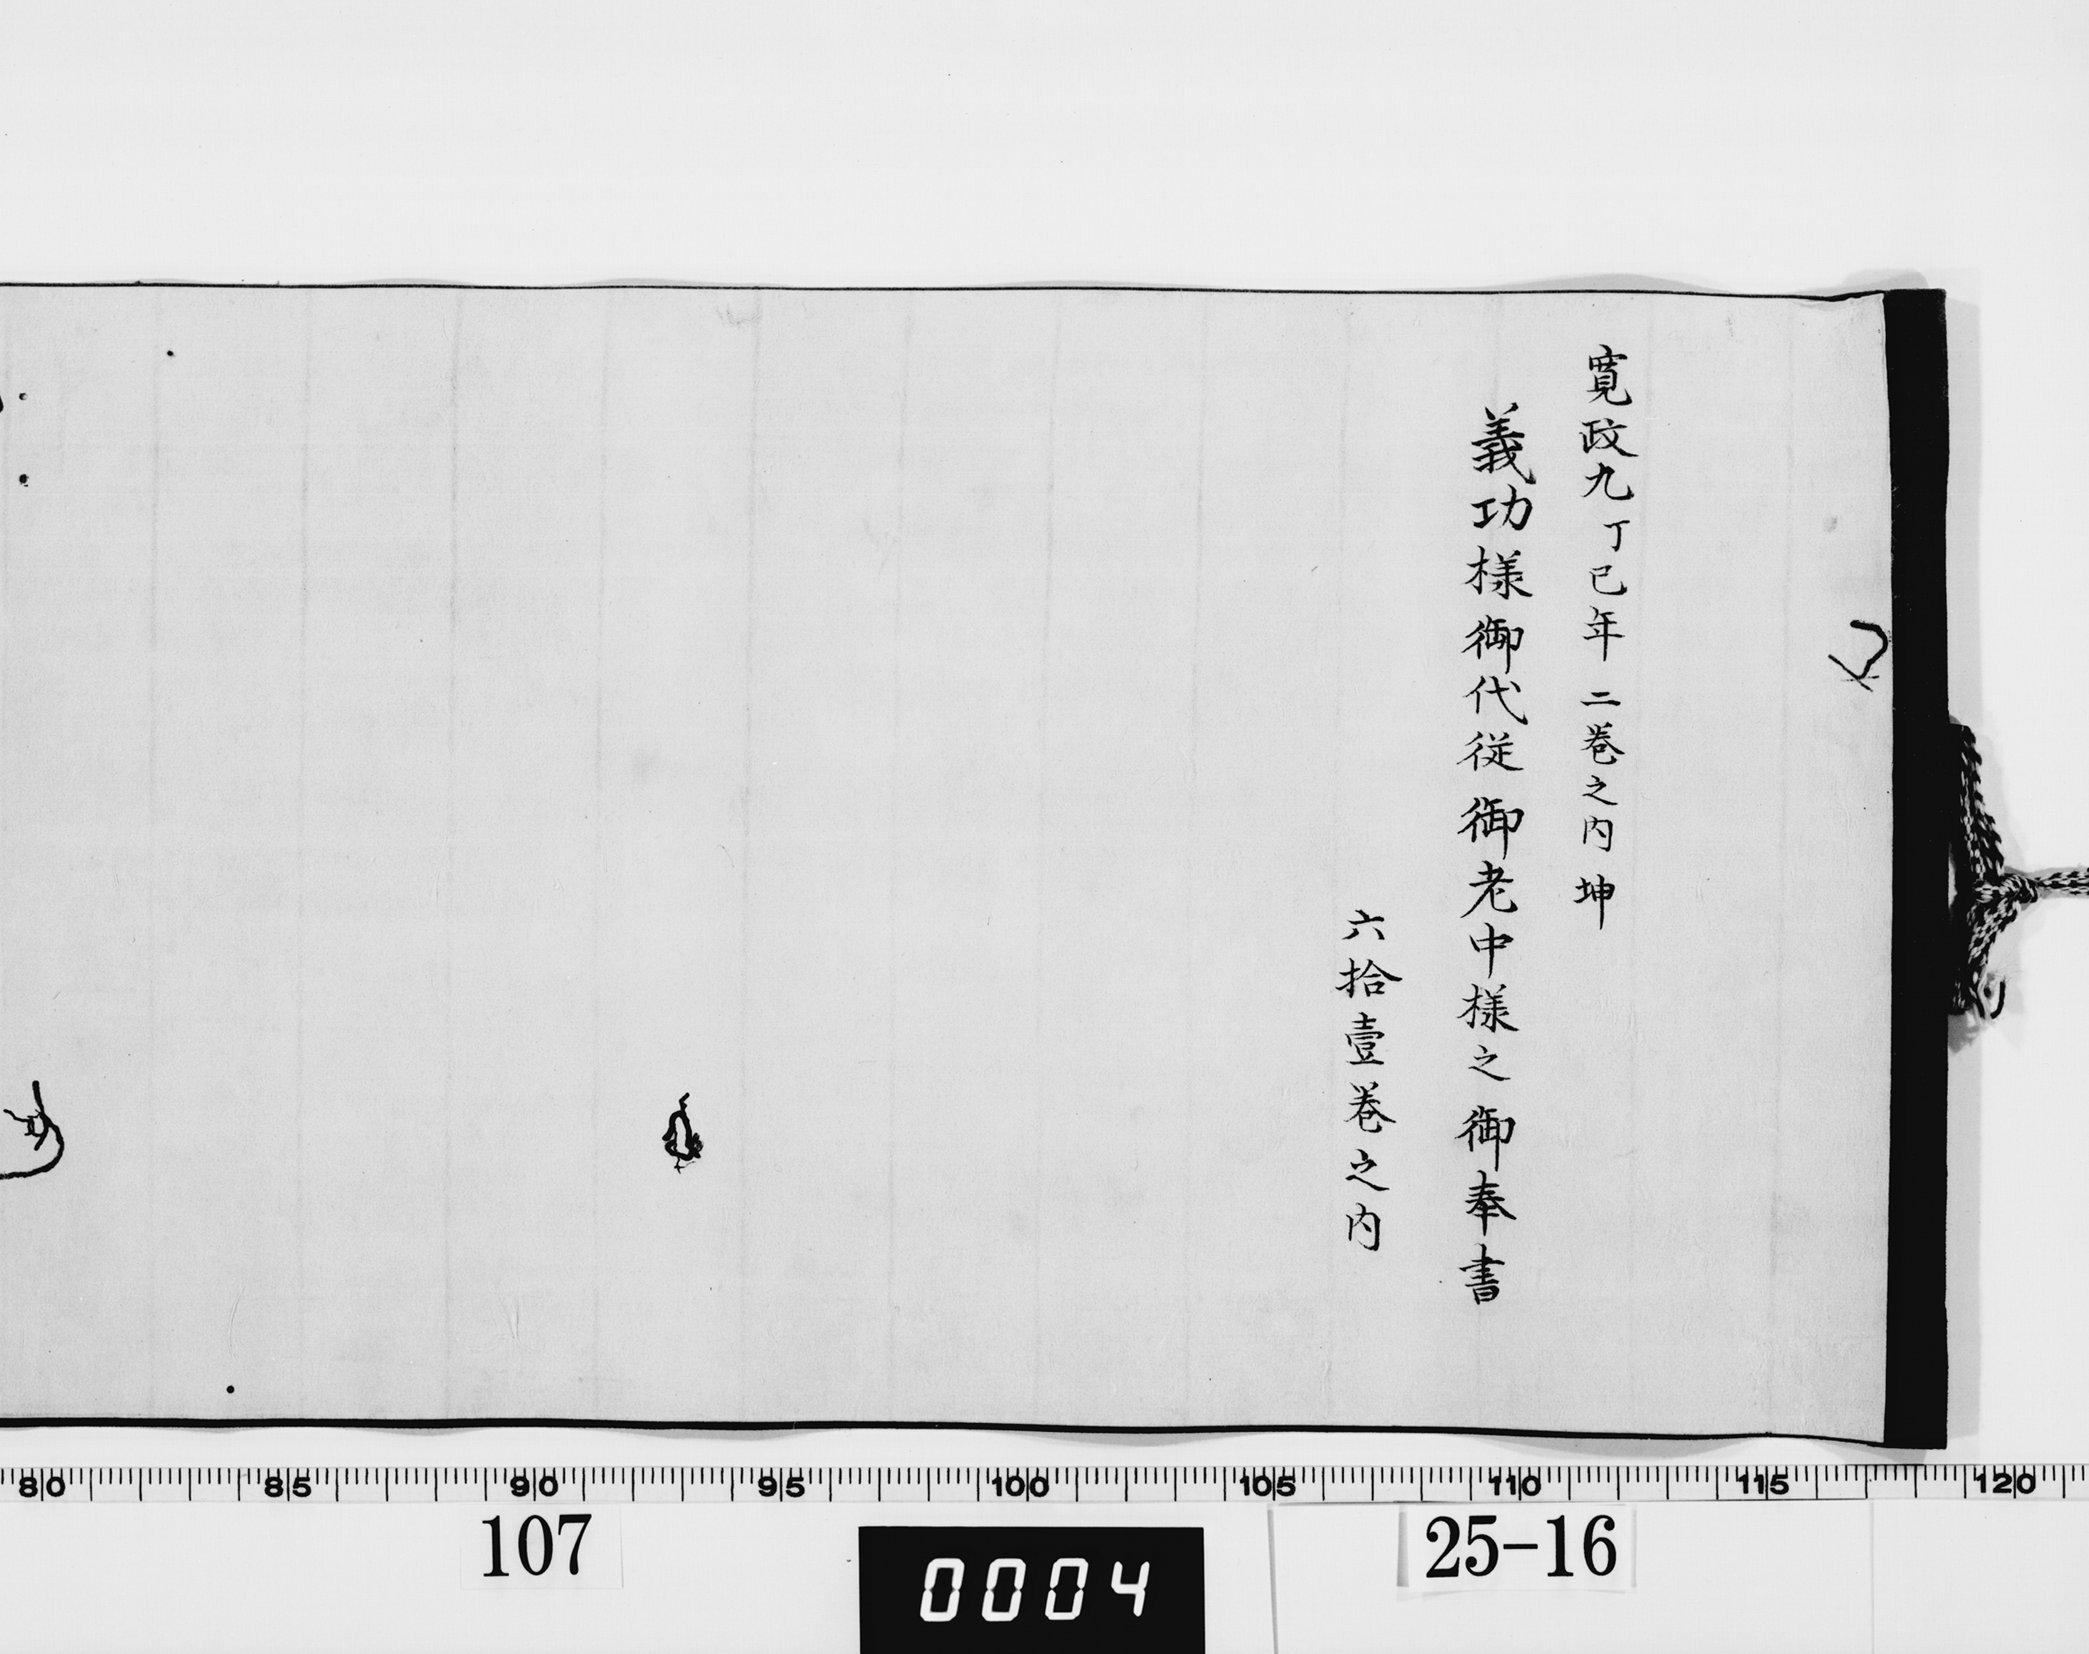 寛政九丁巳年 二巻之内 坤
義功様御代従 御老中様之御奉書
六拾壹巻之内
80 85 90 95 100 105 110 115 120
107
0004
25-16